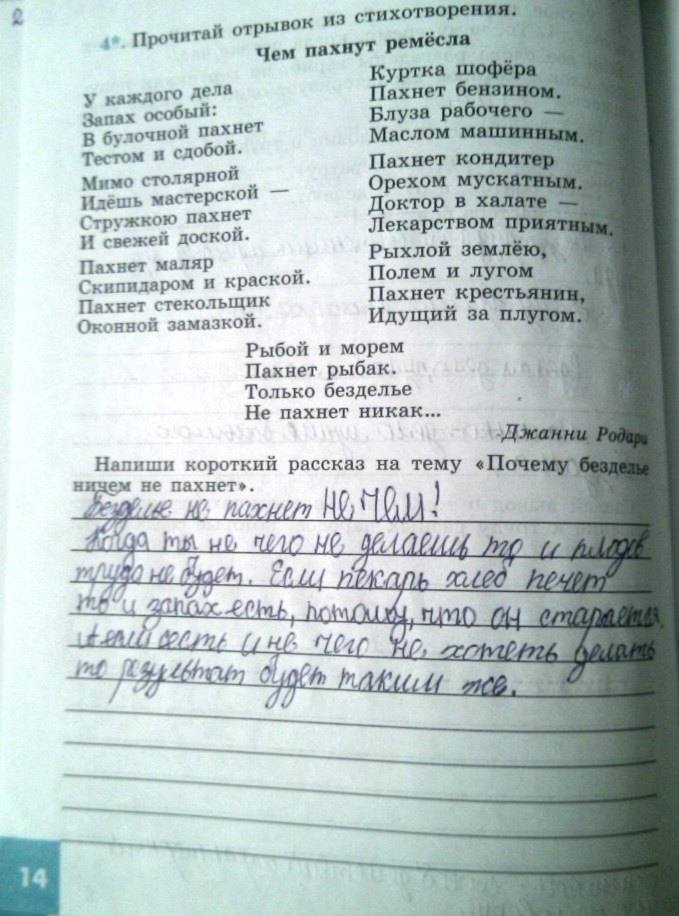 2
4*. Прочитай отрывок из стихотворения.
Чем пахнут ремёсла
У каждого дела
Запах особый:
В булочной пахнет
Тестом и сдобой.
Мимо столярной
Идёшь мастерской —
Стружкою пахнет
И свежей доской.
Пахнет маляр
Скипидаром и краской.
Пахнет стекольщик
Оконной замазкой.
Куртка шофёра
Пахнет бензином.
Блуза рабочего —
Маслом машинным.
Пахнет кондитер
Орехом мускатным.
Доктор в халате —
Лекарством приятным.
Рыхлой землёю,
Полем и лугом
Пахнет крестьянин,
Идущий за плугом.
Рыбой и морем
Пахнет рыбак.
Только безделье
Не пахнет никак...
Джанни Родари
Напиши короткий рассказ на тему «Почему безделье
ничем не пахнет».
Безделье не пахнет не чем!
Когда ты не чего не делаешь то и плодов
труда не будет. Если пекарь хлеб печет
то и запах есть, потому, что он старается.
А если сесть и не чего не хотеть делать
то результат будет таким же.
14